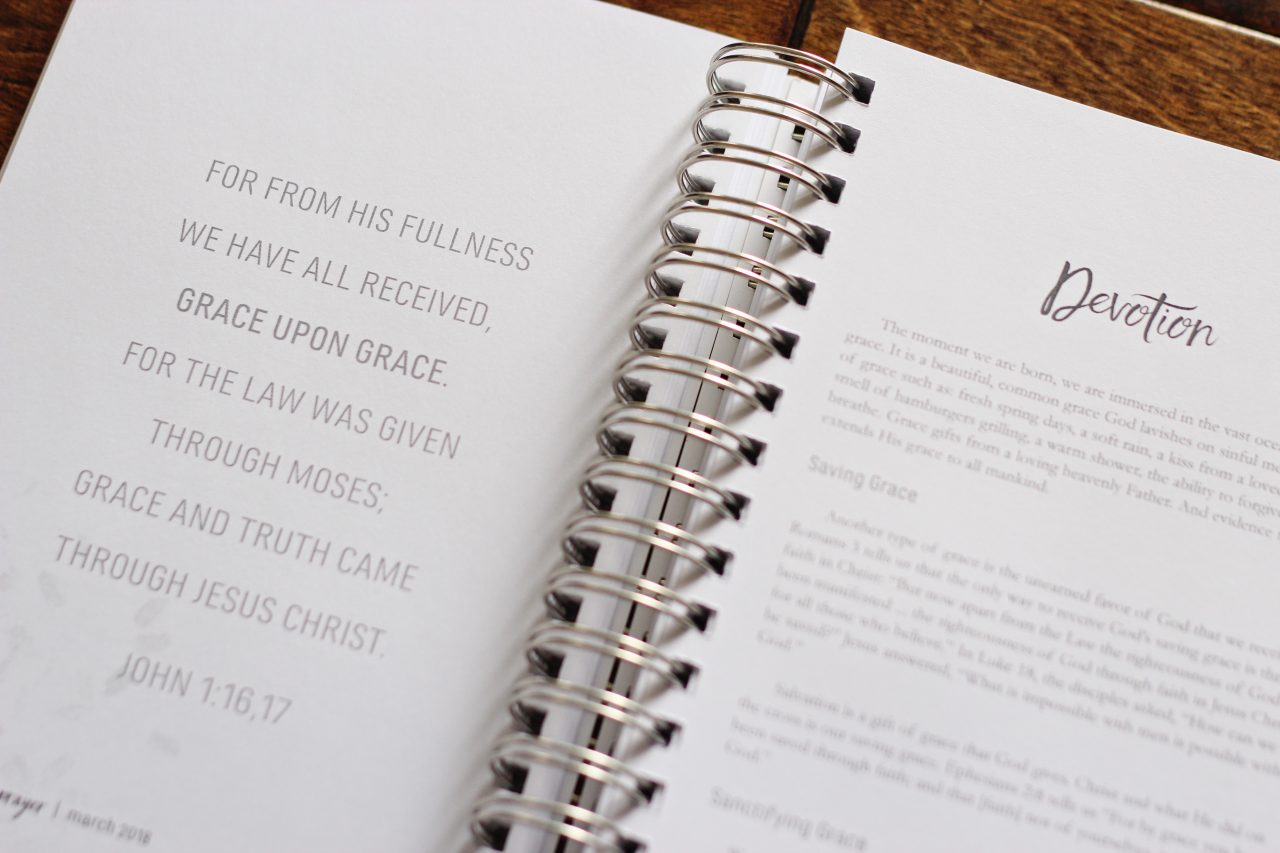 FOR FROM HIS FULLNESS
WE HAVE ALL RECEIVED,
GRACE UPON GRACE.
FOR THE LAW WAS GIVEN
THROUGH MOSES;
GRACE AND TRUTH CAME
THROUGH JESUS CHRIST.
JOHN 1:16,17
| march 2018
Devotion
The moment we are born, we are immersed in the vast
grace. It is a beautiful, common grace God lavishes on sinful
of grace such as: fresh spring days, a soft rain, a kiss from a
smell of hamburgers grilling, a warm shower, the ability to
breathe. Grace gifts from a loving heavenly Father. And evidence
extends His grace to all mankind.
Saving Grace
Another type of grace is the unearned favor of God that we
Romans 3 tells us that the only way to receive God's saving grace is
faith in Christ: "But now apart from the Law the righteousness of God
been manifested ... the righteousness of God through faith in Jesus
for all those who believe." In Luke 18, the disciples asked, "How can we
be saved?" Jesus answered, "What is impossible with men is possible
God."
Salvation is a gift of grace that God gives. Christ and what He did on
the cross is our saving grace. Ephesians 2:8 tells us "For by grace you
been saved through faith; and that [faith] not of
God."
Sanctifying Grace